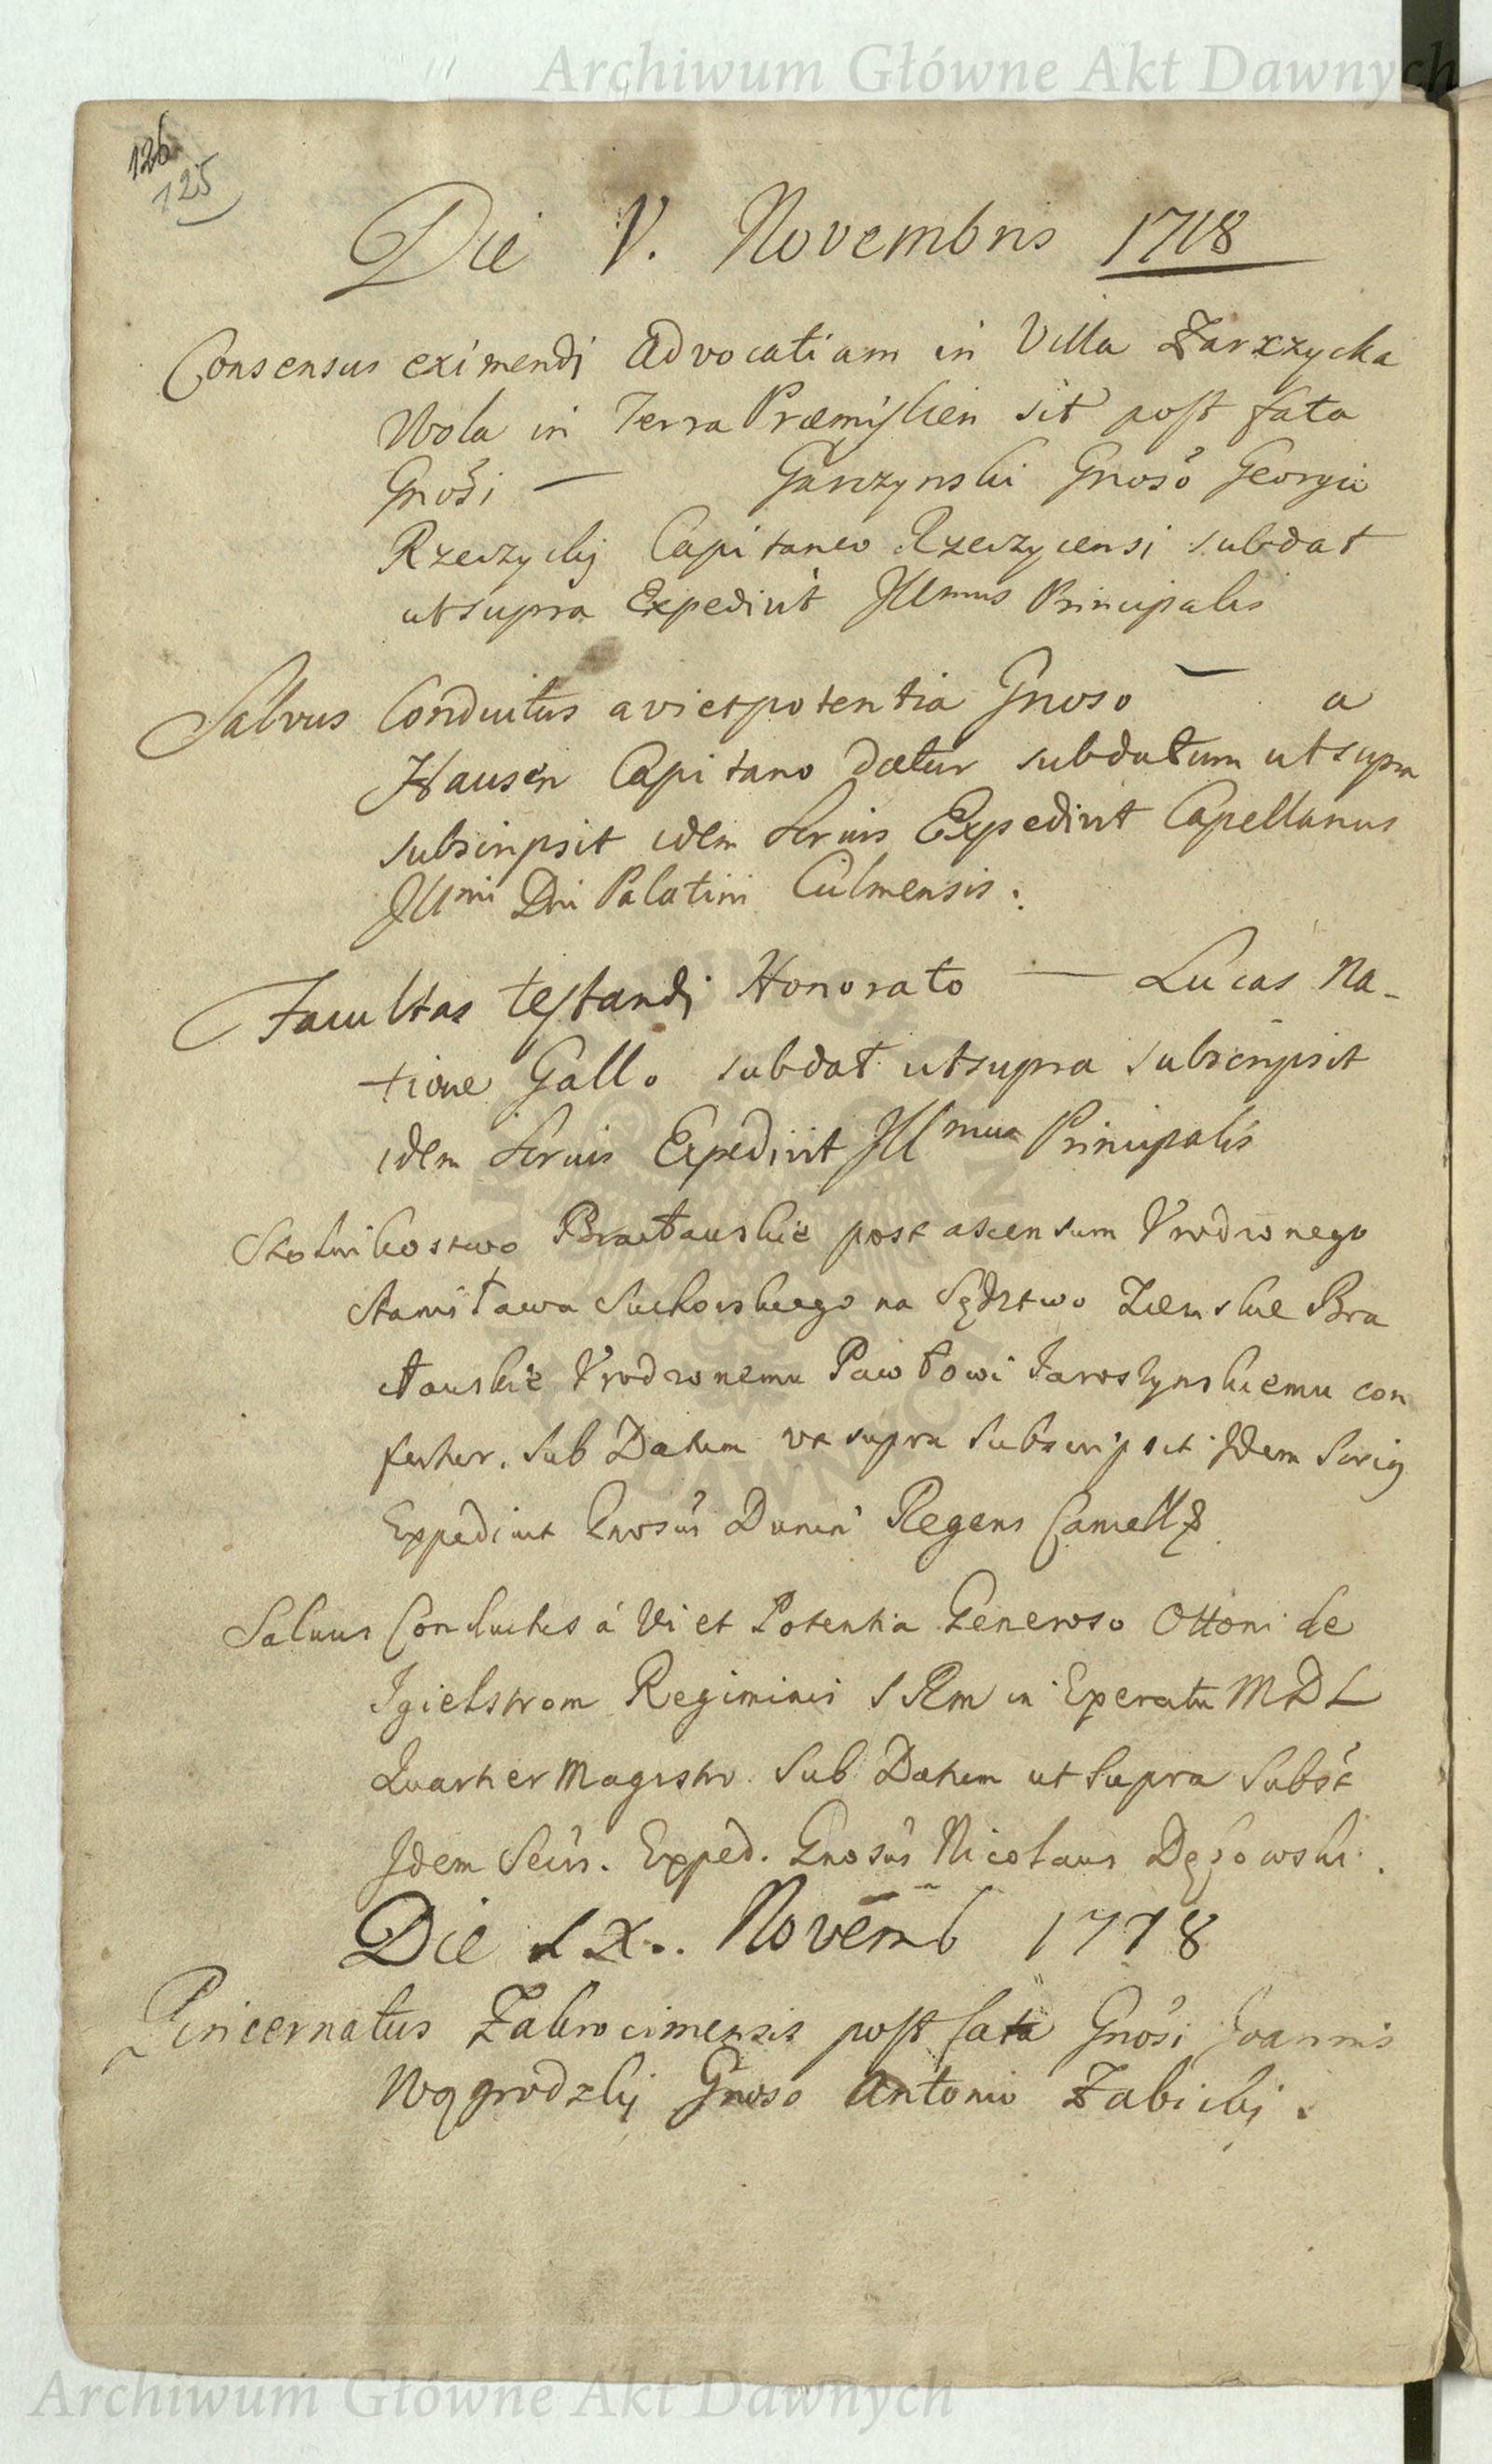 Archiwum Główne Akt Dawnych
126
125
Die V. Novembris 1718
Consensus eximendi advocatiam in Villa Zarzzycka
Wola in Terra Præmislien sit post fata
Gnosi — Garczynski Gnoso Georgio
Rzeczycky Capitaneo Rzeczycensi subdat
utsupra Expedivit Illmus Principalis
Salvus Conductus avietpotentia Gnoso — a
Hausen Capitano datur subdatum utsupra
subscripsit idem Scruis Expedivit Capellanus
Illmi Dni Palatini Culmensis.
Facultas testandi Honorato — Lucas Na-
tione Gallo subdat utsupra subscripsit
idem Scruis Expedivit Illmus Principalis
Stolnikostwo Bracławskie post ascensum Vrodzonego
Stanisława Suchorskiego na Sędztwo Ziemskie Bra
cławskie Vrodzonemu Pawłowi Jaroszynskiemu con
fertur. Sub Datum vt supra Subscripsit Idem Scrius
Expediuit Gnosus Dunin Regens Cancell
Saluus Conductus á Vi et Potentia Generoso Ottoni de
Igielstrom Regiminis S R m in Exercitu MDL
Quarter Magistro Sub Datum ut Supra Subsc
Idem Scius. Exped. Gnosus Nicolaus
Die IX. Novemb 1718
Pincernatus Zakrocimensis post fata Gnosi Joannis
Wągrodzky Gnoso Antonio Zabicky.
Archiwum Główne Akt Dawnych